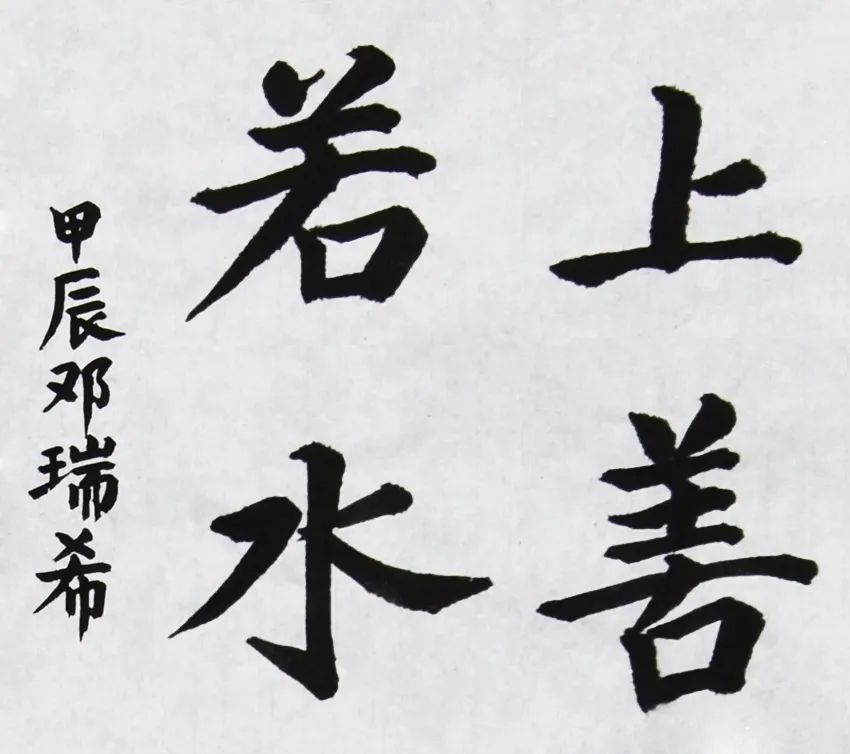 上善
若水
甲辰邓瑞希